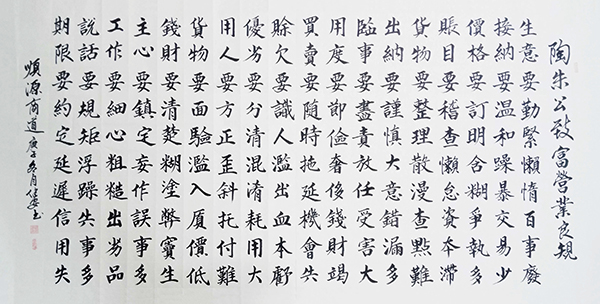 陶朱公致富營業良規
生意要勤緊懶惰百事廢
接納要温和躁暴交易少
價格要訂明含糊爭執多
賬目要稽查懶怠資本滯
貨物要整理散漫查點難
出納要謹慎大意錯漏多
臨事要盡責放任受害大
用度要即儉奢侈錢財竭
買賣要隨時拖延機會失
賒欠要識人濫出血本虧
優劣要分清混淆耗用大
用人要方正歪斜托付難
貨物要面驗濫入厦價低
錢財要清楚糊塗弊竇生
主心要鎮定妄作誤事多
工作要細心粗糙出劣品
說話要規矩浮躁失事多
期限要約定延遲信用失
順源商道 庚子冬月